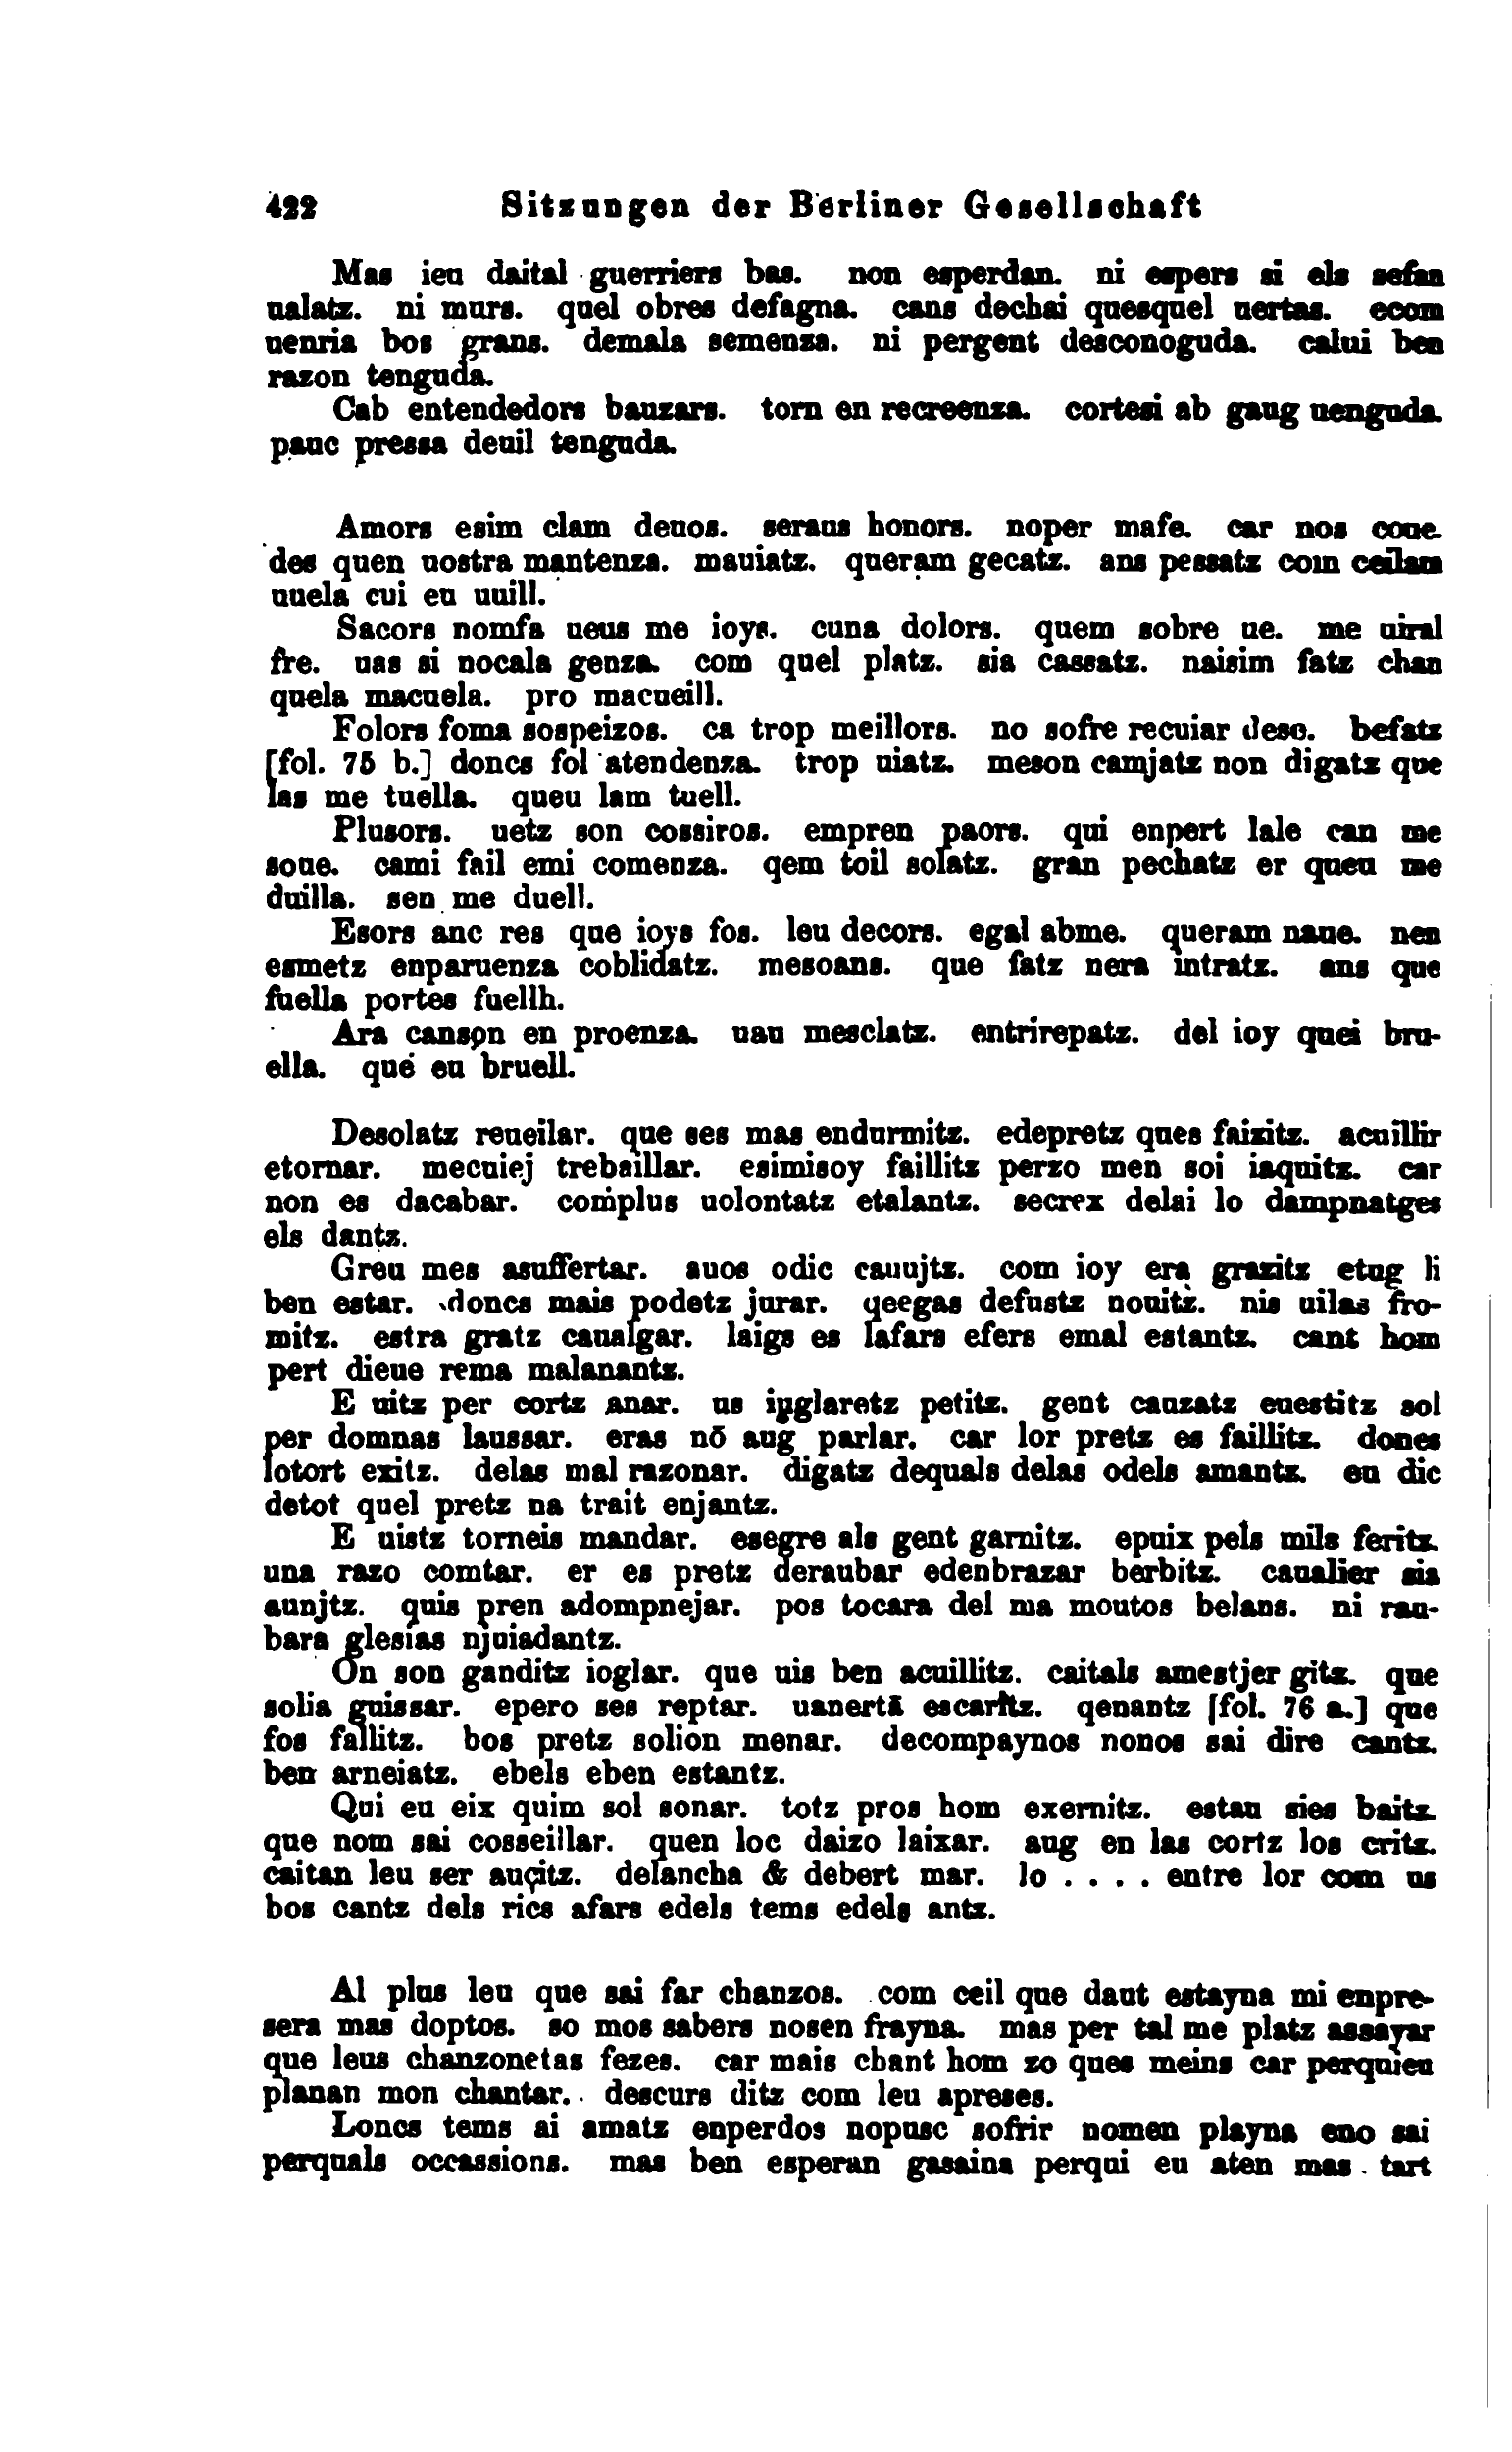 422 Sitzungen der Berliner Gesellschaft
Mas ieu daital guerriers bas. non esperdan. ni espers si els sefan
ualatz. ni murs. quel obres defagna. cans dechai quesquel uertas. ecom
uenria bos grans. demala semenza. ni pergent desconoguda. calui ben
razon tenguda.
Cab entendedors bauzars. torn en recreenza. cortesi ab gaug uenguda.
pauc pressa deuil tenguda.
Amors esim clam deuos. seraus honors. noper mafe. car nos coue.
des quen uostra mantenza. mauiatz. queram gecatz. ans pessatz com ceilam
uuela cui eu uuill.
Sacors nomfa ueus me ioys. cuna dolors. quem sobre ue. me uiral
fre. uas si nocala genza. com quel platz. sia cassatz. naisim fatz chan
quela macuela. pro macueill.
Folors foma sospeizos. ca trop meillors. no sofre recuiar dese. befatz
[fol. 75 b.] doncs fol atendenza. trop uiatz. meson camjatz non digatz que
las me tuella. queu lam tuell.
Plusors. uetz son cossiros. empren paors. qui enpert lale can me
soue. cami fail emi comenza. qem toil solatz. gran pechatz er queu me
duilla. sen me duell.
Esors anc res que ioys fos. leu decors. egal abme. queram naue. nen
esmetz enparuenza coblidatz. mesoans. que fatz nera intratz. ans que
fuella portes fuellh.
Ara canson en proenza. uau mesclatz. entrirepatz. del ioy quei bru-
ella. que eu bruell.
Desolatz reueilar. que ses mas endurmitz. edepretz ques faizitz. acuillir
etornar. mecuiej trebaillar. esimisoy faillitz perzo men soi iaquitz. car
non es dacabar. complus uolontatz etalantz. secrex delai lo dampnatges
els dantz.
Greu mes asuffertar. auos odic cauujtz. com ioy era grazitz etug li
ben estar. doncs mais podetz jurar. qeegas defustz nouitz. nis uilas fro-
mitz. estra gratz caualgar. laigs es lafars efers emal estantz. cant hom
pert dieue rema malanantz.
E uitz per cortz anar. us iuglaretz petitz. gent cauzatz euestitz sol
per domnas laussar. eras nō aug parlar. car lor pretz es faillitz. dones
lotort exitz. delas mal razonar. digatz dequals delas odels amantz. eu dic
detot quel pretz na trait enjantz.
E uistz torneis mandar. esegre als gent garnitz. epuix pels mils feritz.
una razo comtar. er es pretz deraubar edenbrazar berbitz. caualier sia
aunjtz. quis pren adompnejar. pos tocara del ma moutos belans. ni rau-
bara glesias njuiadantz.
On son ganditz ioglar. que uis ben acuillitz. caitals amestjer gitz. que
solia guissar. epero ses reptar. uanertā escaritz. qenantz [fol. 76 a.] que
fos fallitz. bos pretz solion menar. decompaynos nonos sai dire cantz.
ben arneiatz. ebels eben estantz.
Qui eu eix quim sol sonar. totz pros hom exernitz. estau sies baitz.
que nom sai cosseillar. quen loc daizo laixar. aug en las cortz los critz.
caitan leu ser auçitz. delancha & debert mar. lo .... entre lor com us
bos cantz dels rics afars edels tems edels antz.
Al plus leu que sai far chanzos. com ceil que daut estayna mi enpre-
sera mas doptos. so mos sabers nosen frayna. mas per tal me platz assayar
que leus chanzonetas fezes. car mais chant hom zo ques meins car perquieu
planan mon chantar. descurs ditz com leu apreses.
Loncs tems ai amatz enperdos nopusc sofrir nomen playna eno sai
perquals occassions. mas ben esperan gasaina perqui eu aten mas tart